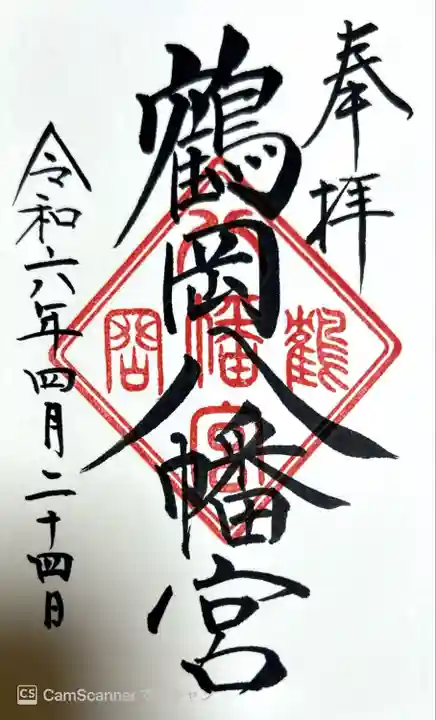 奉拝
鶴岡八幡宮
令和六年四月二十四日
鶴
八幡宮
岡
CS CamScanner でスキャン